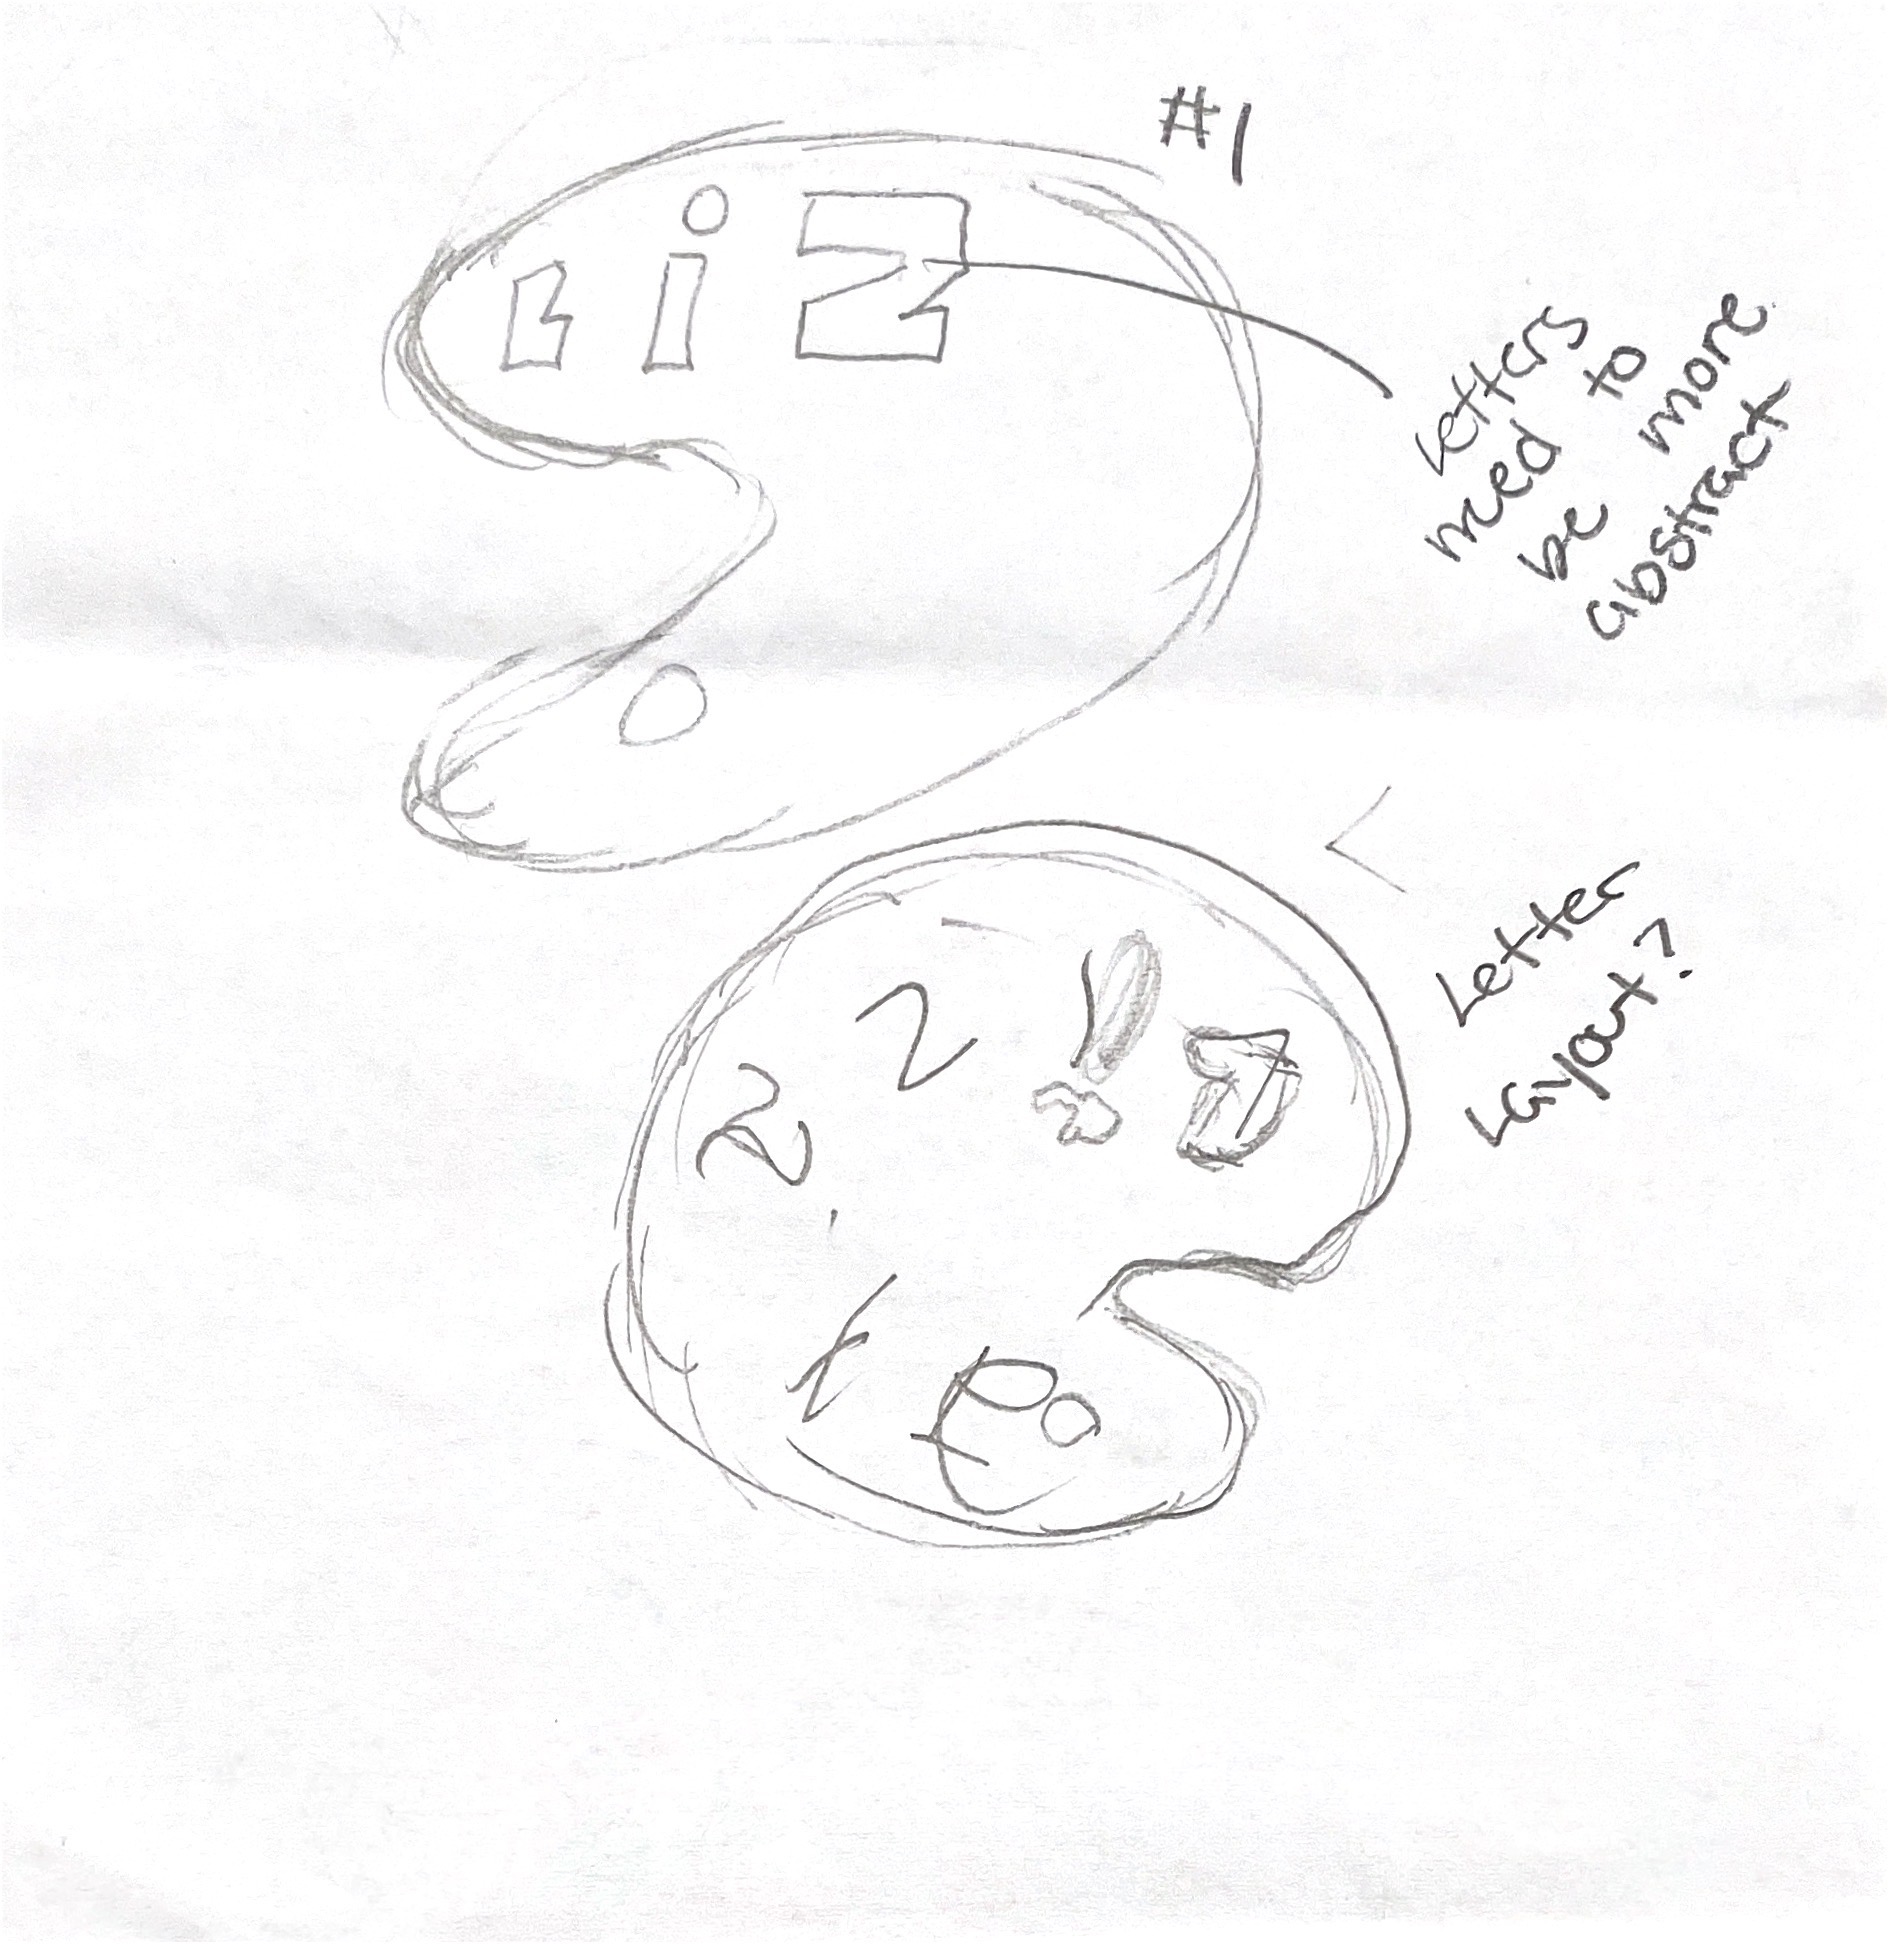 #1
i Z
Letters
need to
be more
abstract
Letter
Layout?
2
2